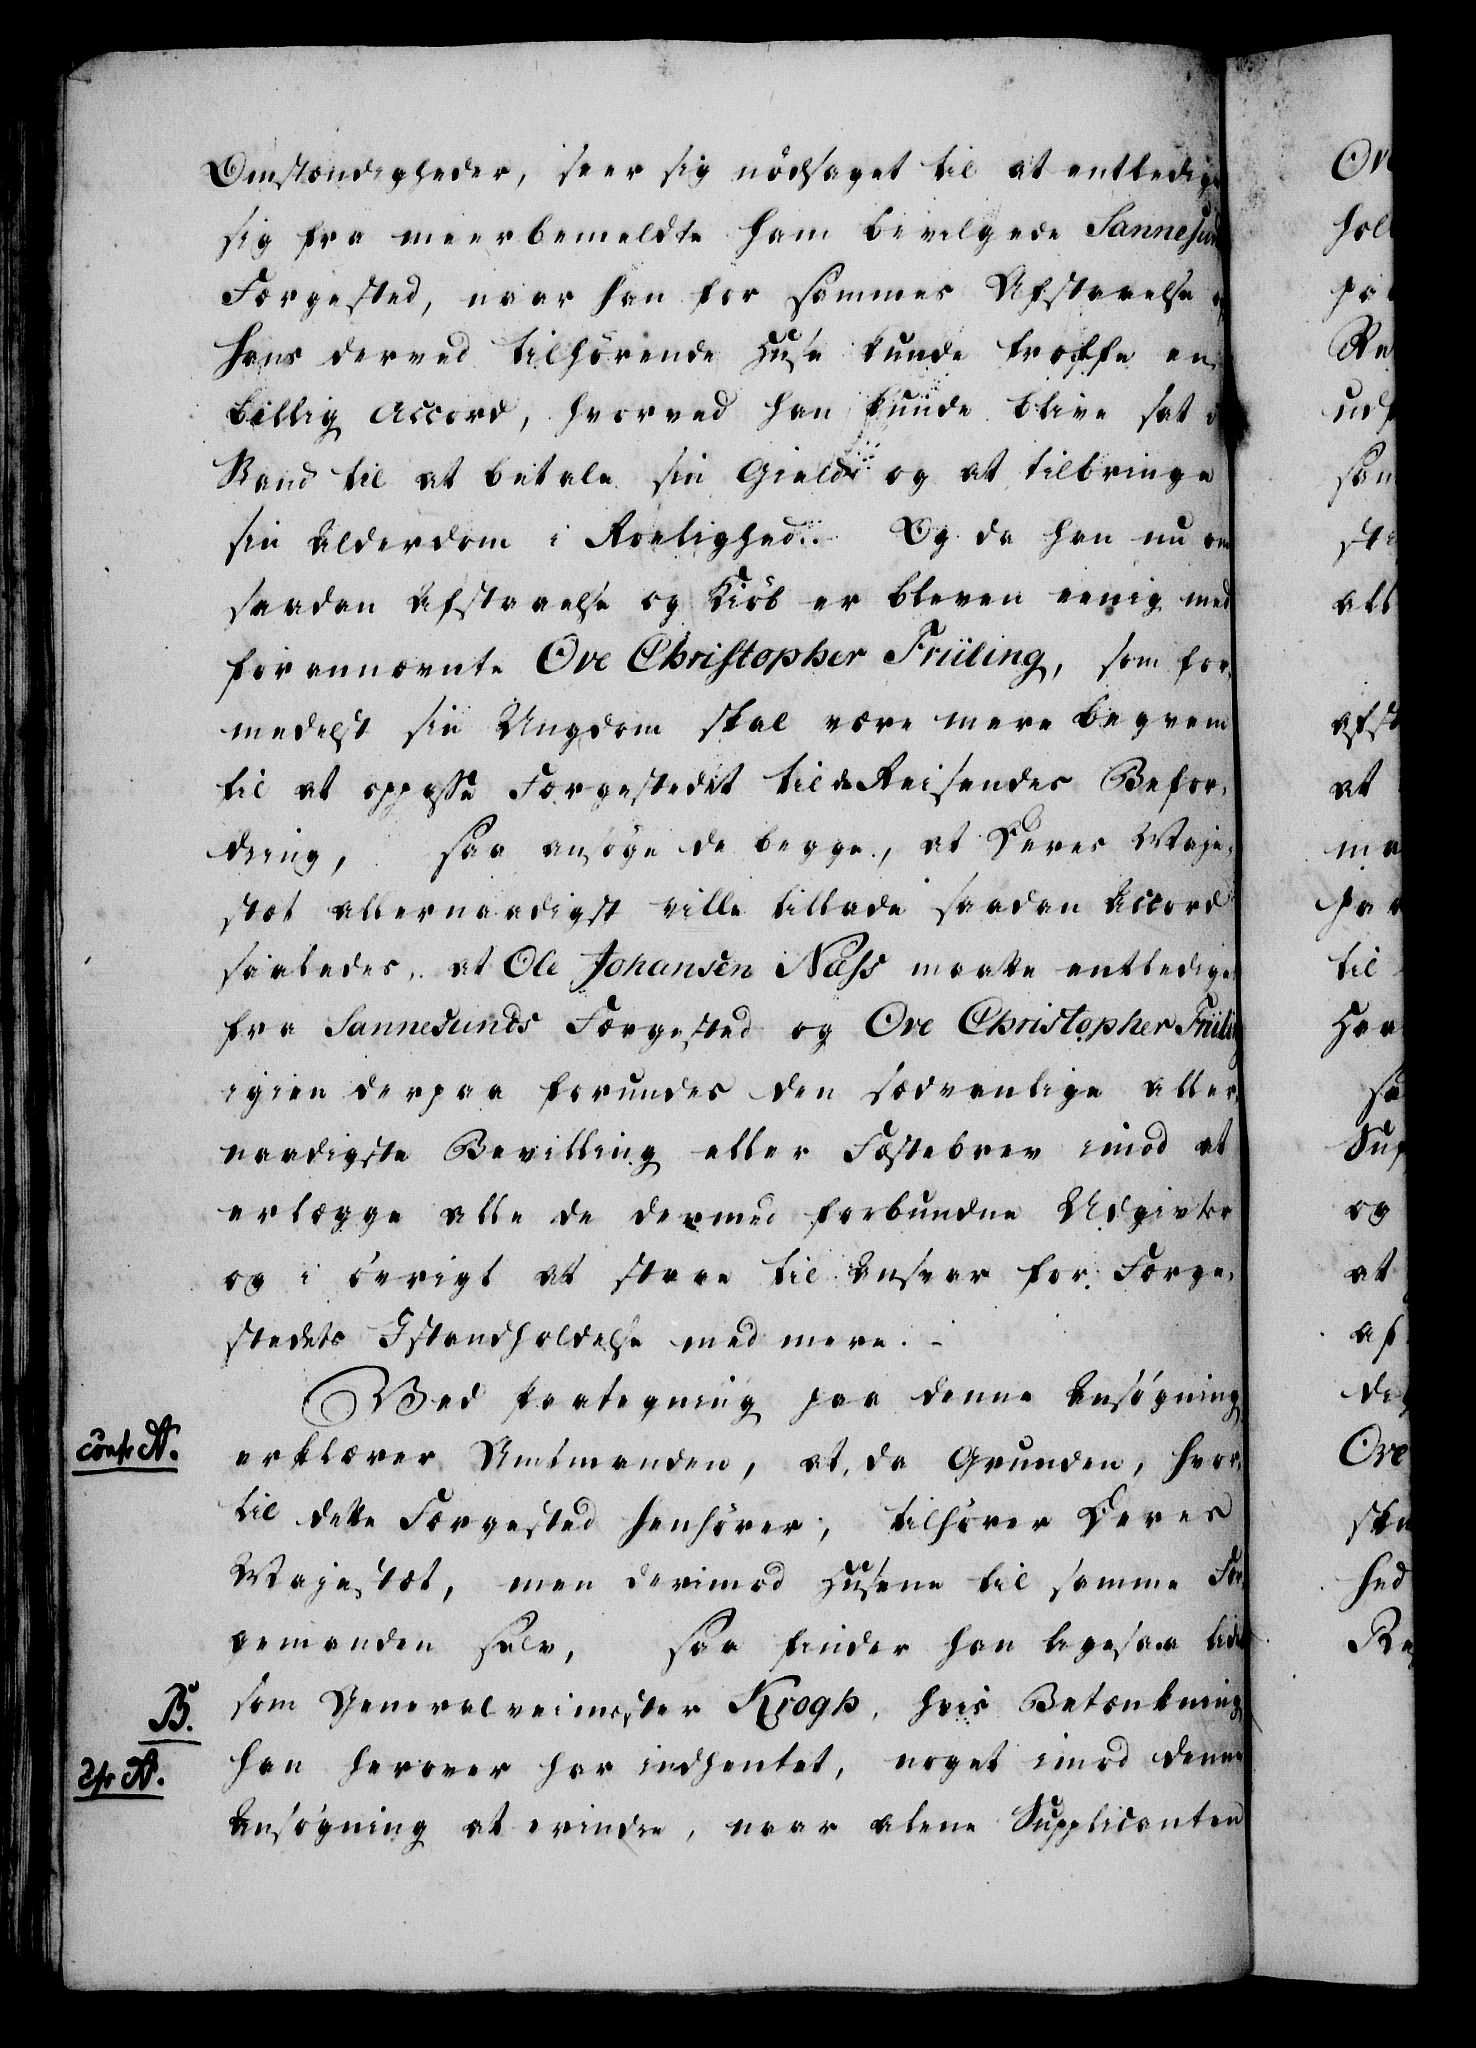 Omstændigheder, seer sig nödsaget til at entledige
sig fra meerbemeldte ham bevilgede Sannesund
Færgested, naar han for sammes Afstaaelse og
hans derved tilhörende Huse kunde træffe en
billig Accord, hvorved han kunde blive sat i
Stand til at betale sin Gield og at tilbringe
sin Alderdom i Roelighed. Og da han nu om
saadan Afstaaelse og Kiöb er bleven eenig med
forannævnte Ove Christopher Früling, som for-
medelst sin Ungdom skal være mere beqvem
til at oppasse Færgestedet til de Reisendes Befor-
dring, saa ansöge de begge, at Deres Maje-
stæt allernaadigst ville tillade saadan Accord
saaledes, at Ole Johansen Næss maatte entlediges
fra Sannesunds Færgested og Ove Christopher Früling
igien derpaa forundes den sædvanlige aller-
naadigste Bevilling eller Fæstebrev imod at
erlægge alle de dermed forbundne Udgivter
og i övrigt at staae til Ansvar for Færge-
stedets Istandholdelse med mere. -
Ved Paategning paa denne Ansögning
confr A.
erklærer Amtmanden, at, da Grunden, hvor-
til dette Færgested henhörer, tilhörer Deres
Majestæt, men derimod Husene til samme Fær-
gemanden selv, saa finder han ligesaa lidt
B.
som Generalveimester Krogh, hvis Betænkning
Cfr A.
han herover har indhentet, noget imod denne
Ansögning at erindre, naar alene Supplicanten